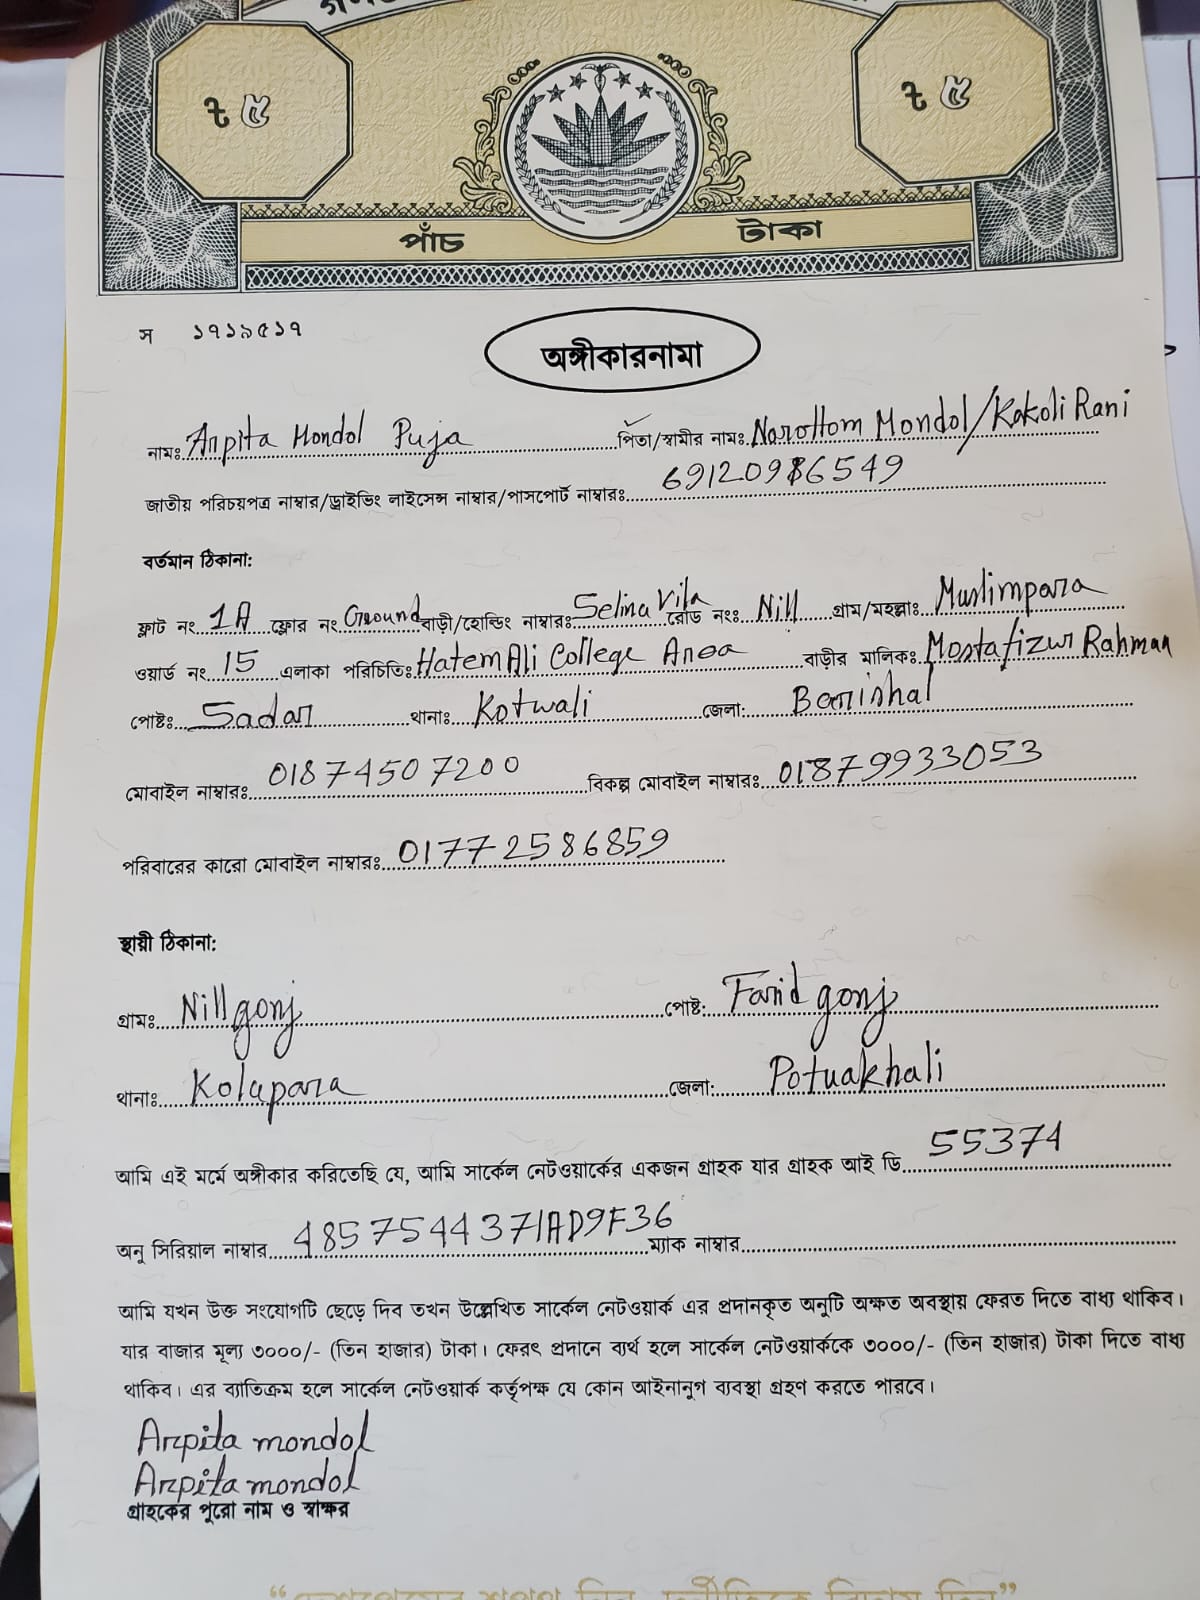 ৳ ৫ ৳ ৫
পাঁচ টাকা
স ১৭১৯৫১৭
অঙ্গীকারনামা
নামঃ Arpita Mondol Puja পিতা/স্বামীর নামঃ Narottom Mondol/Kakoli Rani
জাতীয় পরিচয়পত্র নাম্বার/ড্রাইভিং লাইসেন্স নাম্বার/পাসপোর্ট নাম্বারঃ 69120986549
বর্তমান ঠিকানা:
ফ্লাট নং 1A ফ্লোর নং Ground বাড়ী/হোল্ডিং নাম্বারঃ Selina Vila রোড নংঃ Nill গ্রাম/মহল্লাঃ Muslimpara
ওয়ার্ড নং 15 এলাকা পরিচিতিঃ Hatem Ali College Area বাড়ীর মালিকঃ Mostafizur Rahman
পোষ্টঃ Sadar থানাঃ Kotwali জেলা: Barishal
মোবাইল নাম্বারঃ 01874507200 বিকল্প মোবাইল নাম্বারঃ 01879933053
পরিবারের কারো মোবাইল নাম্বারঃ 01772586859
স্থায়ী ঠিকানা:
গ্রামঃ Nillgonj পোষ্ট: Farid gonj
থানাঃ Kolapara জেলা: Potuakhali
আমি এই মর্মে অঙ্গীকার করিতেছি যে, আমি সার্কেল নেটওয়ার্কের একজন গ্রাহক যার গ্রাহক আই ডি 55374
অনু সিরিয়াল নাম্বার 4857544371AD9F36 ম্যাক নাম্বার
আমি যখন উক্ত সংযোগটি ছেড়ে দিব তখন উল্লেখিত সার্কেল নেটওয়ার্ক এর প্রদানকৃত অনুটি অক্ষত অবস্থায় ফেরত দিতে বাধ্য থাকিব।
যার বাজার মূল্য ৩০০০/- (তিন হাজার) টাকা। ফেরৎ প্রদানে ব্যর্থ হলে সার্কেল নেটওয়ার্ককে ৩০০০/- (তিন হাজার) টাকা দিতে বাধ্য
থাকিব। এর ব্যতিক্রম হলে সার্কেল নেটওয়ার্ক কর্তৃপক্ষ যে কোন আইনানুগ ব্যবস্থা গ্রহণ করতে পারবে।
Arpita mondol
Arpita mondol
গ্রাহকের পুরো নাম ও স্বাক্ষর